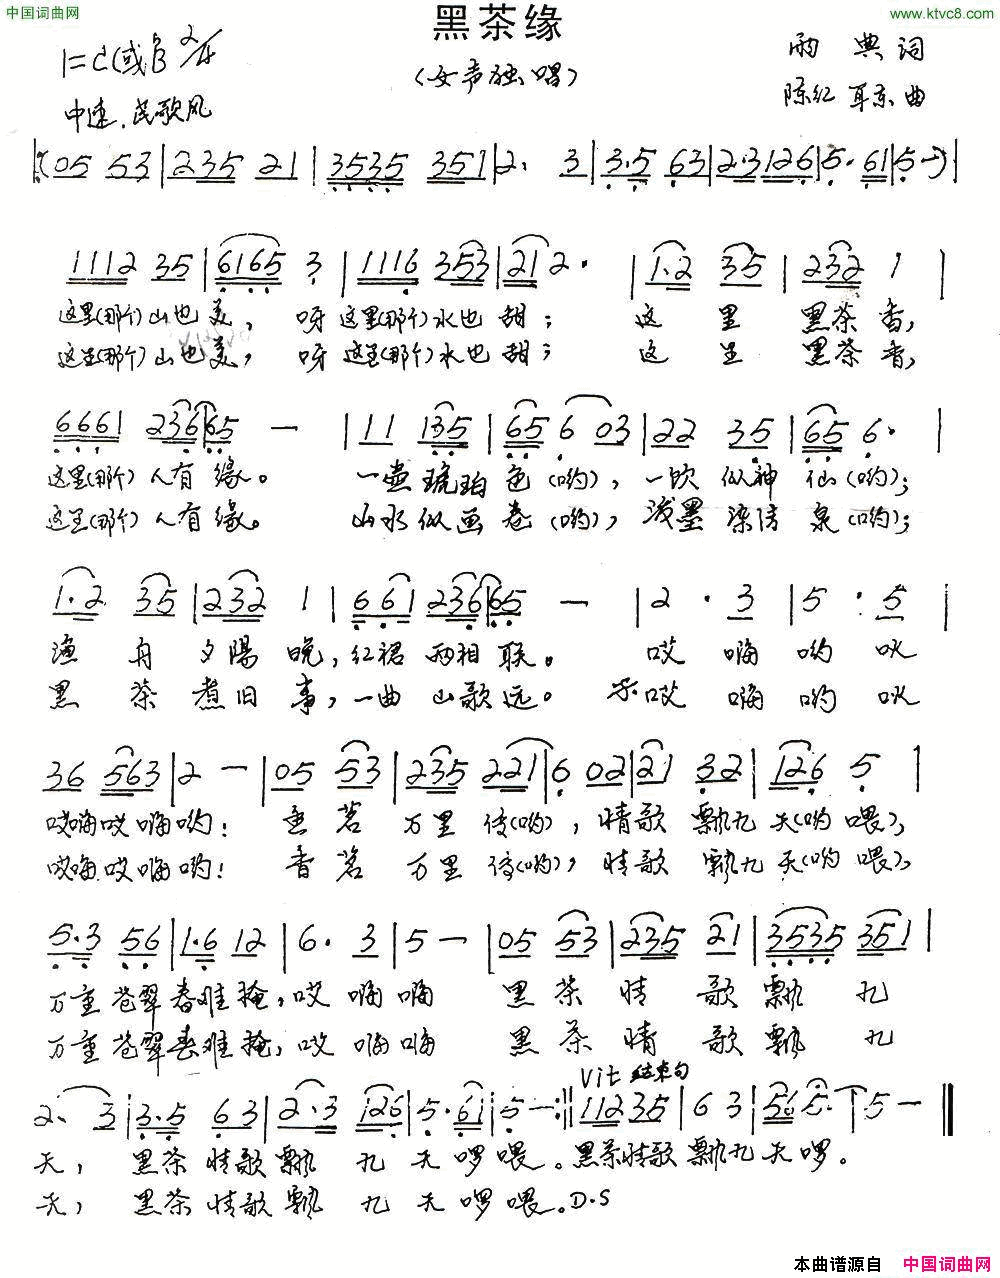 中国词曲网
www.ktvc8.com
黑茶缘
1=C(或B 2/4
(女声独唱)
雨典词
中速.民歌风
陈红 耳东曲
(05 53|235 21|3535 351|2. 3|3.5 63|2.3126|5.61|5-)|
1112 35|6165 3|1116 353|21 2.|1.2 35|232 1|
这里(那个)山也美,呀这里(那个)水也甜;这里黑茶香,
这里(那个)山也美,呀这里(那个)水也甜;这里黑茶香,
6661 236|65 -|11 135|65 6 03|22 35|65 6.|
这里(那个)人有缘。一壶琥珀色(哟),一饮似神仙(哟);
这里(那个)人有缘。山水似画卷(哟),浅墨染清泉(哟);
1.2 35|232 1|661 236|65 -|2.3|5.5|
渔舟夕陽晚,红裙两相联。哎嗨哟吙
黑茶煮旧事,一曲山歌远。哎嗨哟吙
36 563|2-|05 53|235 221|6 02|21 32|126 5|
哎嗨哎嗨哟!香茗万里传(哟),情歌飘九天(哟喂),
哎嗨哎嗨哟!香茗万里传(哟),情歌飘九天(哟喂),
5.3 56|1.6 12|6.3|5-|05 53|235 21|3535 351|
万重苍翠春难掩,哎嗨嗨黑茶情歌飘九
万重苍翠春难掩,哎嗨嗨黑茶情歌飘九
Vit 结束句
2. 3|3.5 63|2.3 126|5.61|5-:||11235|63|56 5.|5-||
天,黑茶情歌飘九天啰喂。黑茶情歌飘九天啰。
天,黑茶情歌飘九天啰喂。D.S
本曲谱源自 中国词曲网